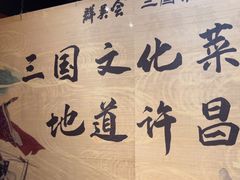 群英会 三国
三国文化菜
地道许昌